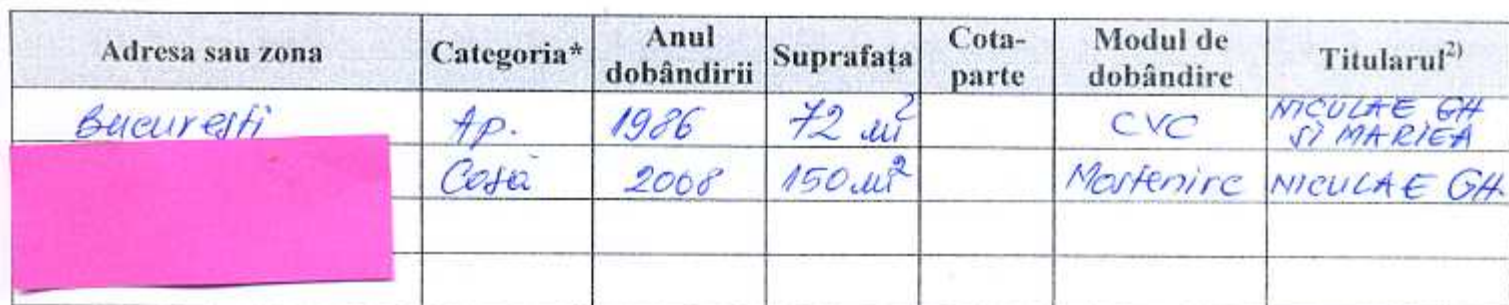 Adresa sau zona Categoria* Anul dobândirii Suprafața Cota-parte Modul de dobândire Titularul2)
București Ap. 1986 72 m2 CVC NICULAE GH ȘI MARIEA
Casă 2008 150 m2 Mostenire NICULAE GH.